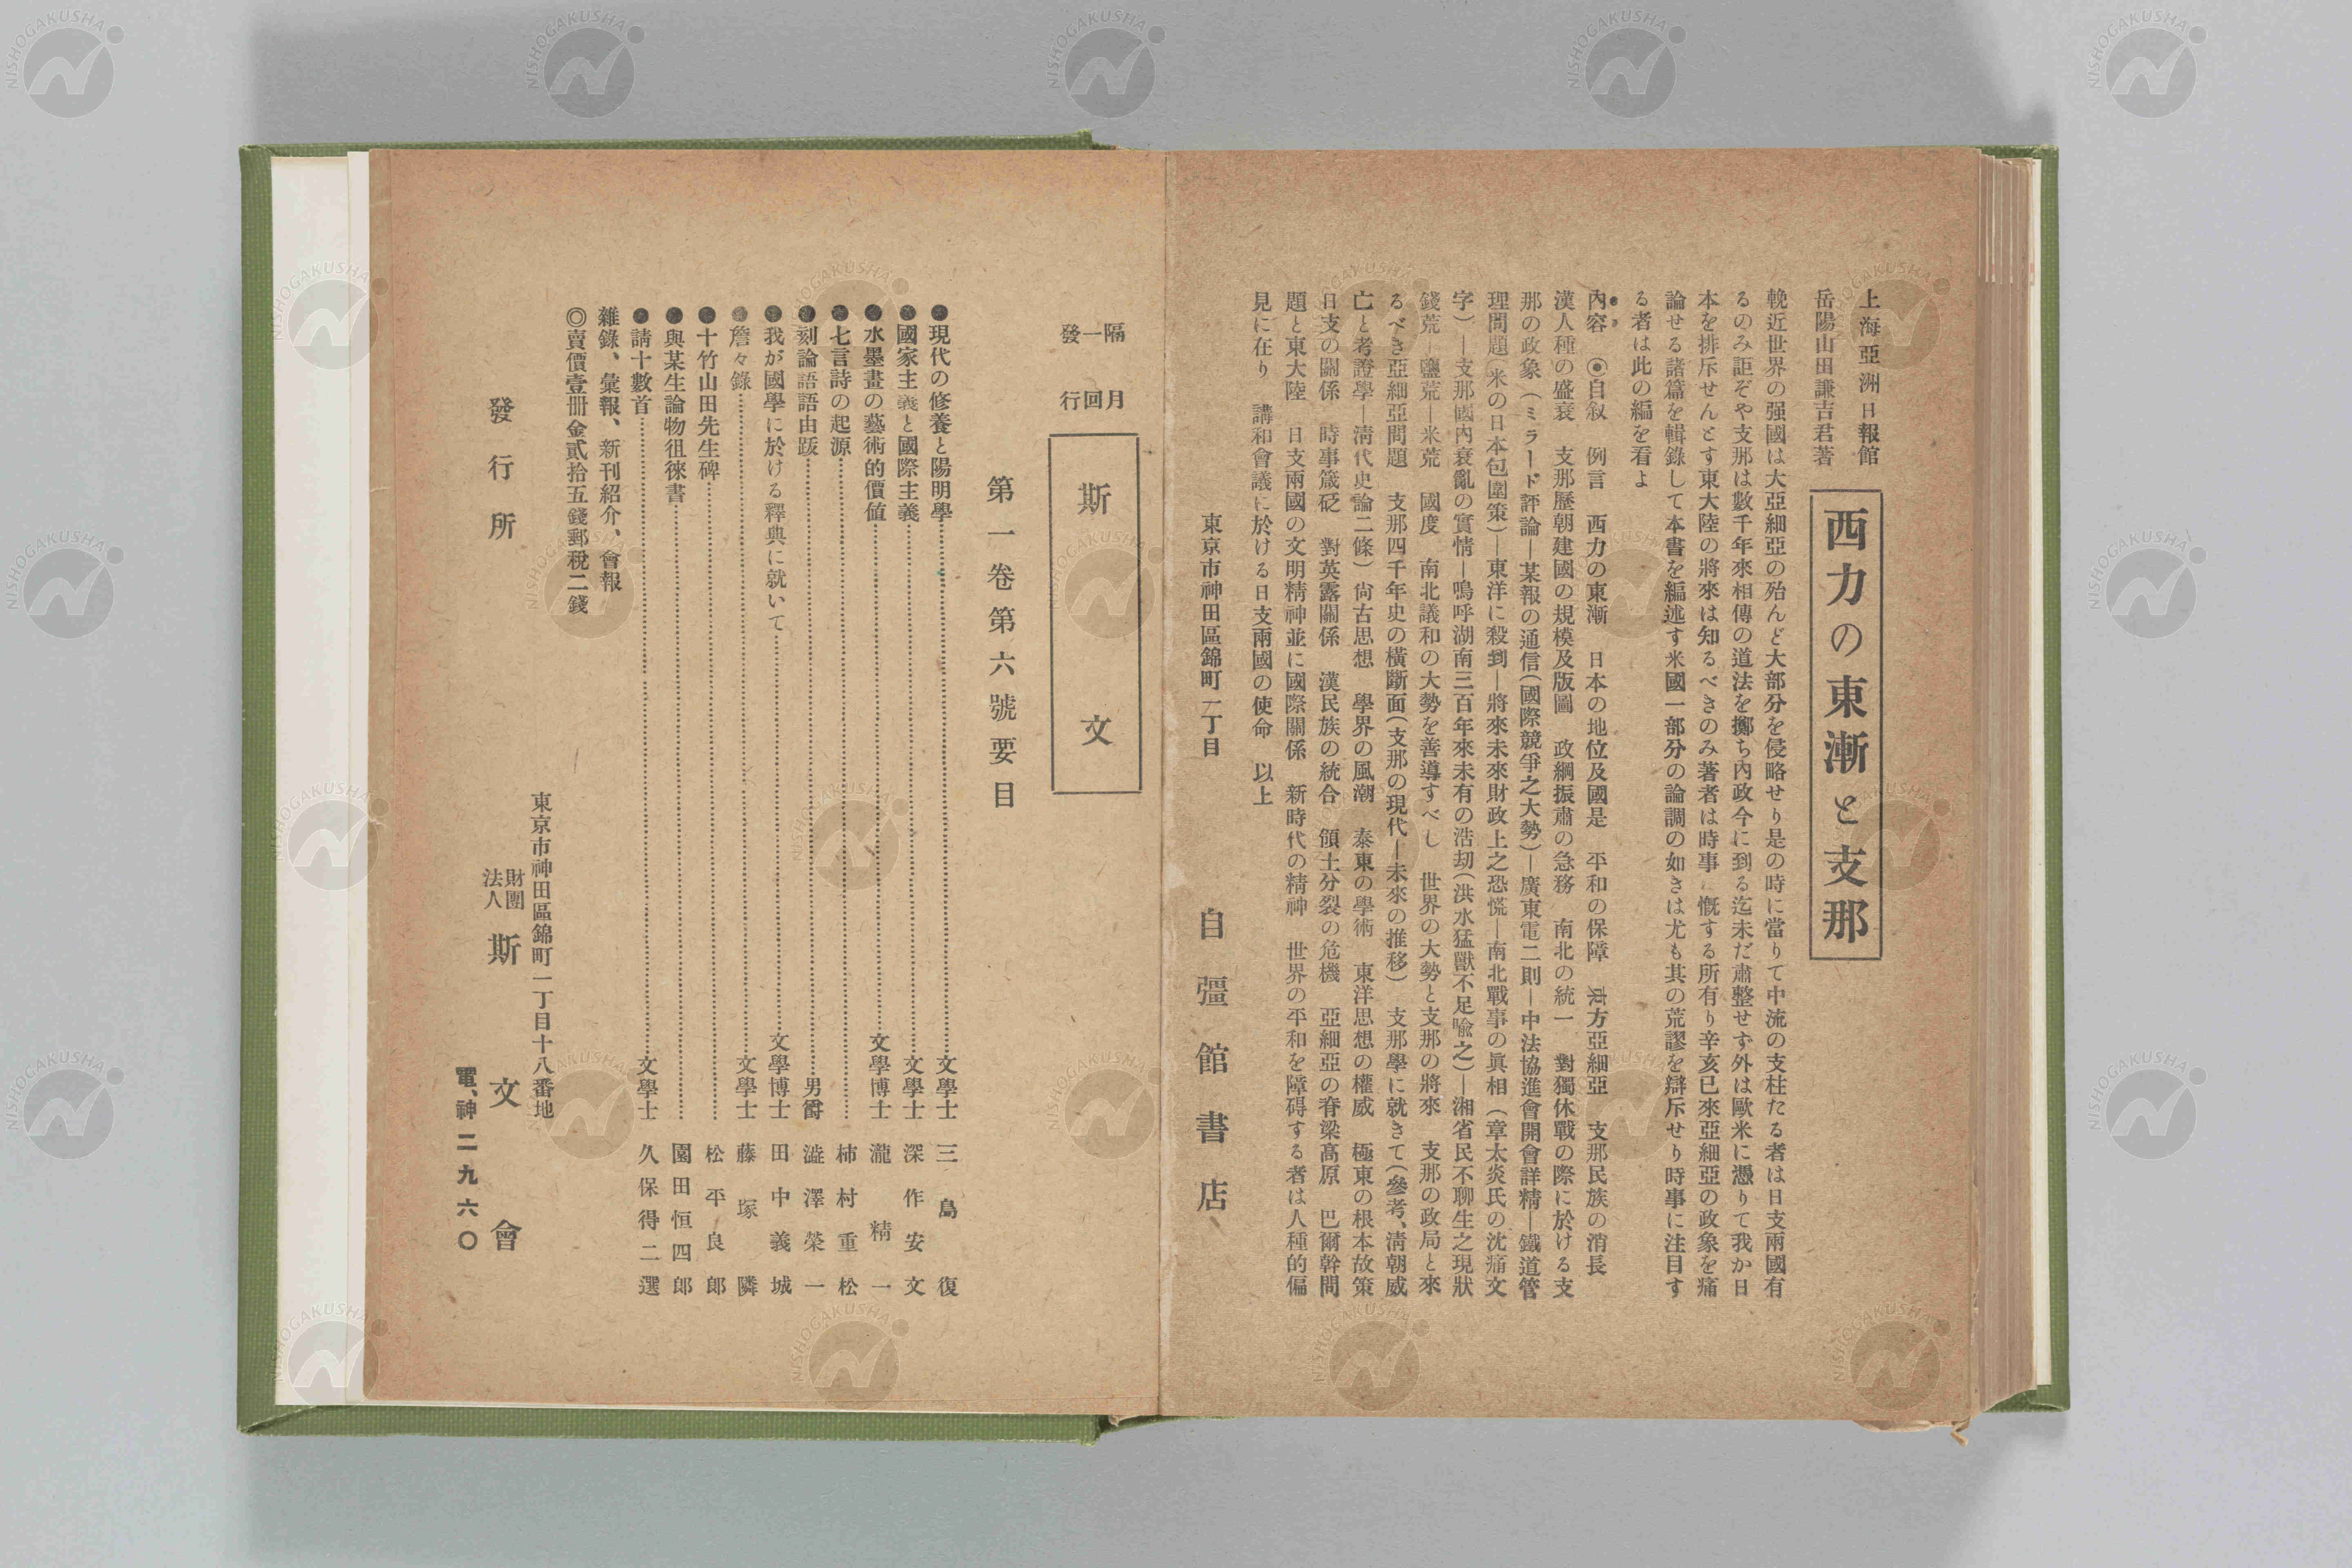 上海亞洲日報館
岳陽山田謙吉君著
西力の東漸と支那
輓近世界の强國は大亞細亞の殆んど大部分を侵略せり是の時に當りて中流の支柱たる者は日支兩國有
るのみ詎ぞや支那は數千年來相傳の道法を擲ち內政今に到る迄未だ肅整せず外は歐米に憑りて我か日
本を排斥せんとす東大陸の將來は知るべきのみ著者は時事に慨する所有り辛亥已來亞細亞の政象を痛
論せる諸篇を輯錄して本書を編述す米國一部分の論調の如きは尤も其の荒謬を辯斥せり時事に注目す
る者は此の編を看よ
內容 ◉自叙 例言 西力の東漸 日本の地位及國是 平和の保障 東方亞細亞 支那民族の消長
漢人種の盛衰 支那歷朝建國の規模及版圖 政綱振肅の急務 南北の統一 對獨休戰の際に於ける支
那の政象(ミラード評論―某報の通信(國際競爭之大勢)―廣東電二則―中法協進會開會詳精―鐵道管
理問題(米の日本包圍策)―東洋に殺到―將來未來財政上之恐慌―南北戰事の眞相(章太炎氏の沈痛文
字)―支那國內衰亂の實情―嗚呼湖南三百年來未有の浩刧(洪水猛獸不足喩之)―湘省民不聊生之現狀
錢荒―鹽荒―米荒 國度 南北議和の大勢を善導すべし 世界の大勢と支那の將來 支那の政局と來
るべき亞細亞問題 支那四千年史の橫斷面(支那の現代―未來の推移) 支那學に就きて(參考、淸朝威
亡と考證學―淸代史論二條) 尙古思想 學界の風潮 泰東の學術 東洋思想の權威 極東の根本故策
日支の關係 時事箴砭 對英露關係 漢民族の統合 領土分裂の危機 亞細亞の脊梁高原 巴爾幹問
題と東大陸 日支兩國の文明精神並に國際關係 新時代の精神 世界の平和を障碍する者は人種的偏
見に在り 講和會議に於ける日支兩國の使命 以上
東京市神田區錦町一丁目
自彊館書店
隔月
一回
發行
斯文
第一卷第六號要目
●現代の修養と陽明學………文學士 三島復
●國家主義と國際主義………文學士 深作安文
●水墨畫の藝術的價値………文學博士 瀧精一
●七言詩の起源………柿村重松
●刻論語語由跋………男爵 澁澤榮一
●我が國學に於ける釋典に就いて………文學博士 田中義城
●詹々錄………文學士 藤塚隣
●十竹山田先生碑………松平良郎
●與某生論物徂徠書………園田恒四郎
●請十數首………文學士 久保得二選
雜錄、彙報、新刊紹介、會報
◎賣價壹冊金貳拾五錢郵稅二錢
東京市神田區錦町一丁目十八番地
發行所 財團法人 斯文會
電、神二九六〇